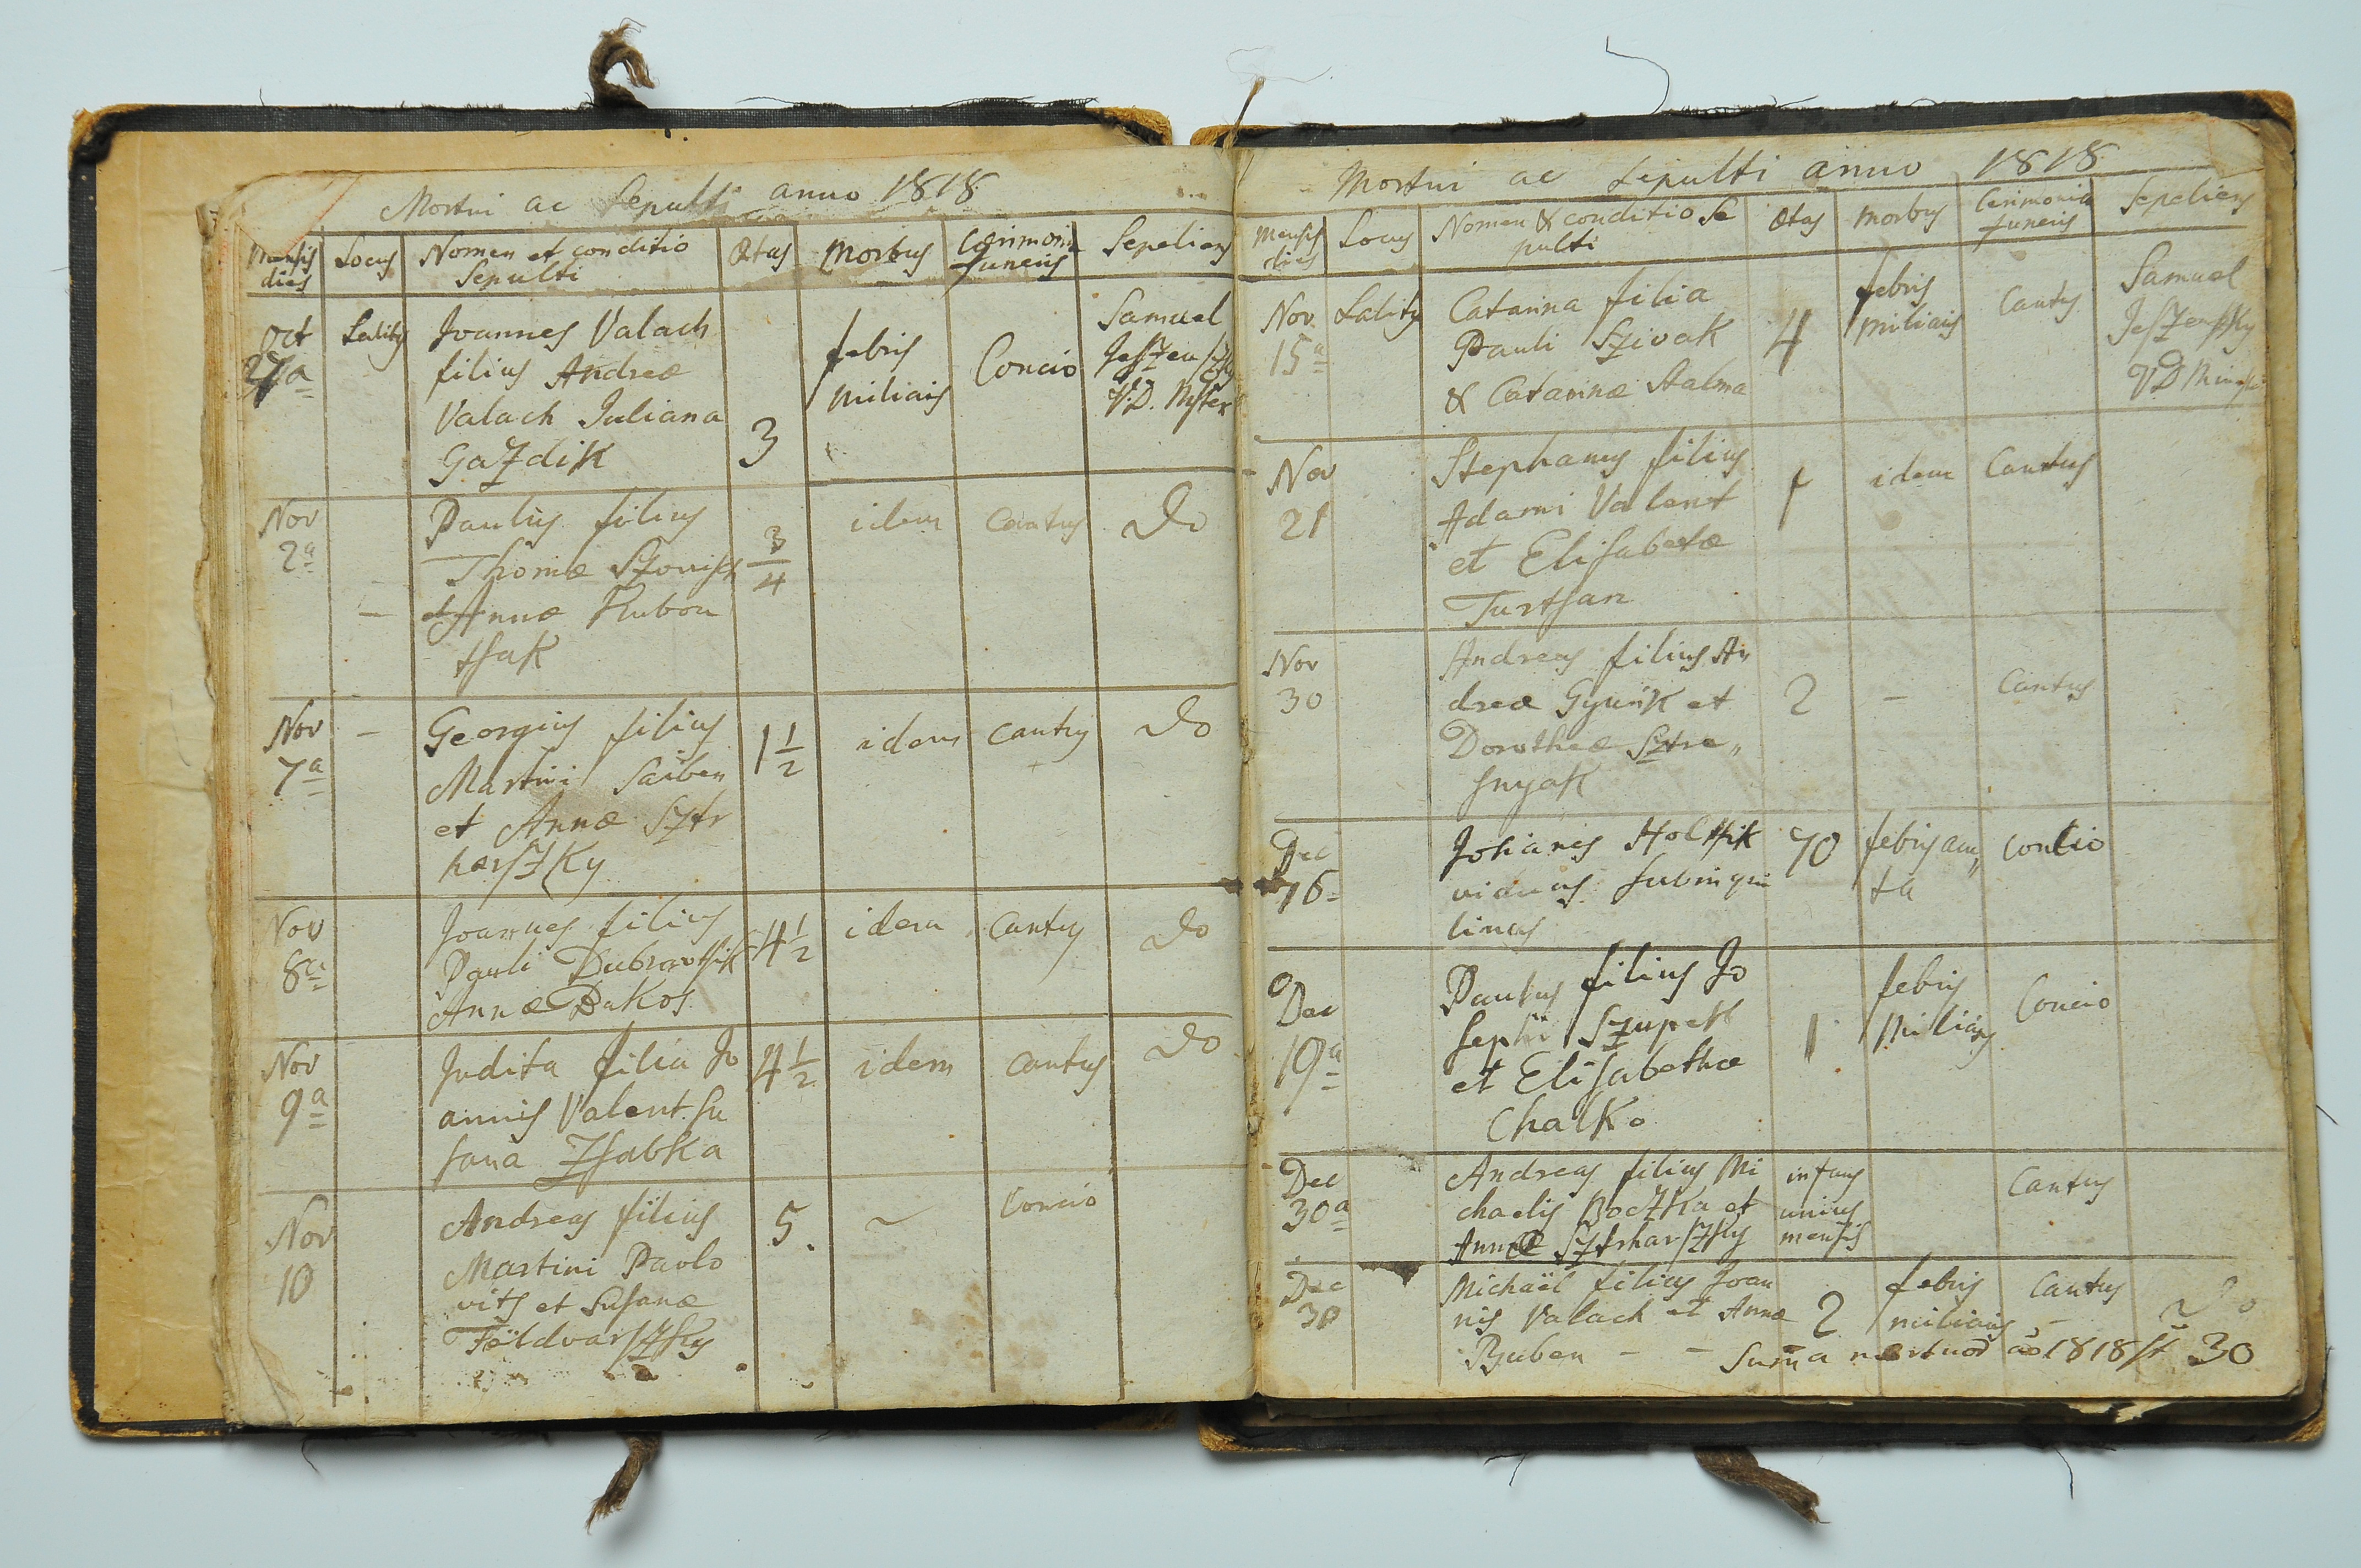 Mortui ac Sepulti anno 1818.
Mensis dies Locus Nomen et conditio Sepulti Ætas Morbus Cærimonia funeris Sepeliens
Oct 27a Lality Joannes Valach
filius Andreæ
Valach Juliana
Gazdik
3
febris
miliaris
Concio
Samuel
Jeszenszky
V.D. Mster
Nov
2a
Paulus filius
Thomæ
et Annæ Kubon
tsak
3/4
idem
Cantus
Do
Nov
7a
Georgius filius
Martini Saiben
et Annæ Sztr
harszky
1 1/2
idem
Cantus
Do
Nov
8a
Joannes filius
Pauli Dubravtsik
Annæ Bakos
4 1/2
idem
Cantus
Do
Nov
9a
Judita filia Jo
annis Valent Su
sana Zsabka
4 1/2
idem
Cantus
Do
Nov
10
Andreas filius
Martini Pavlo
vits et Susanæ
Földvarszky
5.
~
Concio
Mortui ac Sepulti anno 1818
Mensis dies Locus Nomen & conditio Se
pulti
Ætas Morbus Cerimonia funeris Sepeliens
Nov. 15a Lality Catarina filia
Pauli Szivak
& Catarinæ Stalma
4
febris
miliaris
Cantus
Samuel
Jeszenszky
V D
Nov
21
Stephanus filius
Adami Valent
et Elisabetæ
Turtsan
1
idem
Cantus
Nov
30
Andreas filius An
dreæ Gyurik et
Dorotheæ Sztra„
snyak
2
–
Cantus
Dec
16
Johanes Holtsik
viduus subinqui
linus
70
febris acu„
ta
Concio
Dec
19a
Paulus filius Jo
sephi Szupek
et Elisabethæ
Chalko
1
febris
miliaris
Concio
Dec
30a
Andreas filius Mi
chaelis Boczka et
Annæ Sztrharszky
infans
unius
mensis
Cantus
Dec
30
Michaël filius Joan
nis Valach et Annæ
Buben – –
2
febris
miliaris
Cantus
Suma mortuor ao 1818 st 30